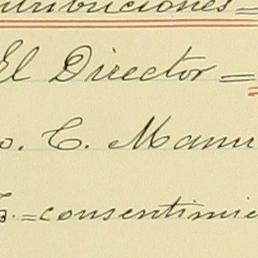 tribuciones =
El Director =
o. C. Manu
B. = consentimie